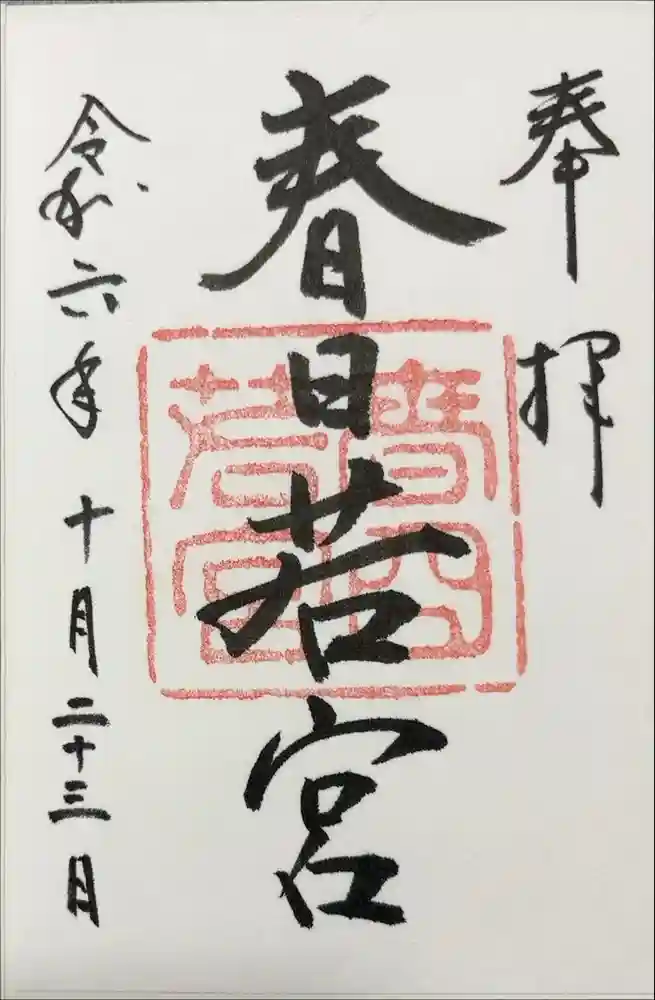 奉拝
春日若宮
令和六年十月二十三日
春日
若宮